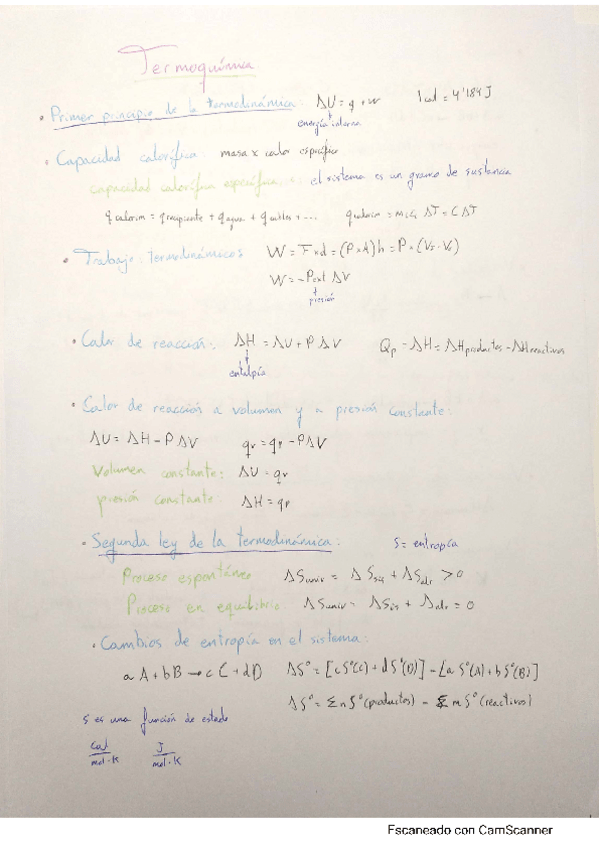 Termoquímica
• Primer principio de la termodinámica: ΔU = q + w 1 cal = 4'184 J
energía interna
• Capacidad calorífica: masa x calor específico
capacidad calorífica específica: el sistema es un gramo de sustancia
q calorim = q recipiente + q agua + ... q calorim = ΔT = C ΔT
• Trabajo termodinámicos W = F x d = (P x A) h = P x
W = - Pext ΔV
presión
• Calor de reacción: ΔH = ΔU + P ΔV Qp - ΔH = ΔH productos - ΔH reactivos
entalpía
• Calor de reacción a volumen y a presión constante:
ΔU = ΔH - P ΔV qv = qp - P ΔV
Volumen constante: ΔU = qv
presión constante: ΔH = qp
• Segunda ley de la termodinámica: S = entropía
Proceso espontáneo ΔS univ = ΔS sis + ΔS alr > 0
Proceso en equilibrio ΔS univ = ΔS sis + Δ alr = 0
• Cambios de entropía en el sistema:
a A + b B → c C + d D ΔSº = [c Sº(C) + d Sº(D)] - [a Sº(A) + b Sº(B)]
ΔSº = Σ n Sº (productos) - Σ m Sº (reactivos)
S es una función de estado
cal/mol·K J/mol·K
Escaneado con CamScanner